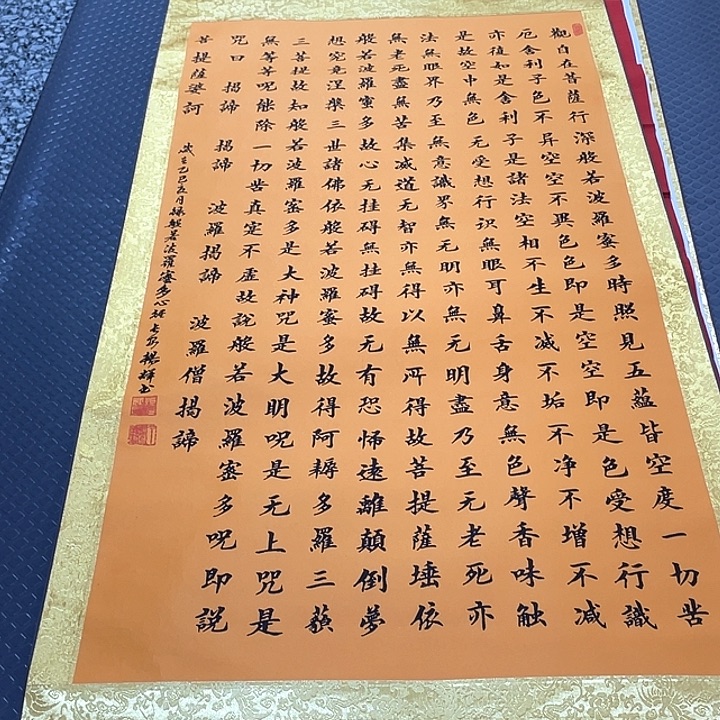 觀自在菩薩行深般若波羅蜜多時照見五蘊皆空度一切苦
厄舍利子色不异空空不異色色即是空空即是色受想行識
亦復如是舍利子是諸法空相不生不减不垢不净不增不减
是故空中無色无受想行识無眼耳鼻舌身意無色聲香味触
法無眼界乃至無意識界無无明亦無无明盡乃至无老死亦
無老死盡無苦集减道无智亦無得以無所得故菩提薩埵依
般若波羅蜜多故心无挂碍無挂碍故无有恐怖遠離顛倒夢
想究竟涅槃三世諸佛依般若波羅蜜多故得阿耨多羅三藐
三菩提故知般若波羅蜜多是大神咒是大明咒是无上咒是
無等等呪能除一切苦真寔不虛故說般若波羅蜜多呪即説
咒曰 揭諦 揭諦 波羅揭諦 波羅僧揭諦
菩提薩婆訶
乙巳 月 般若波羅蜜多心經 書